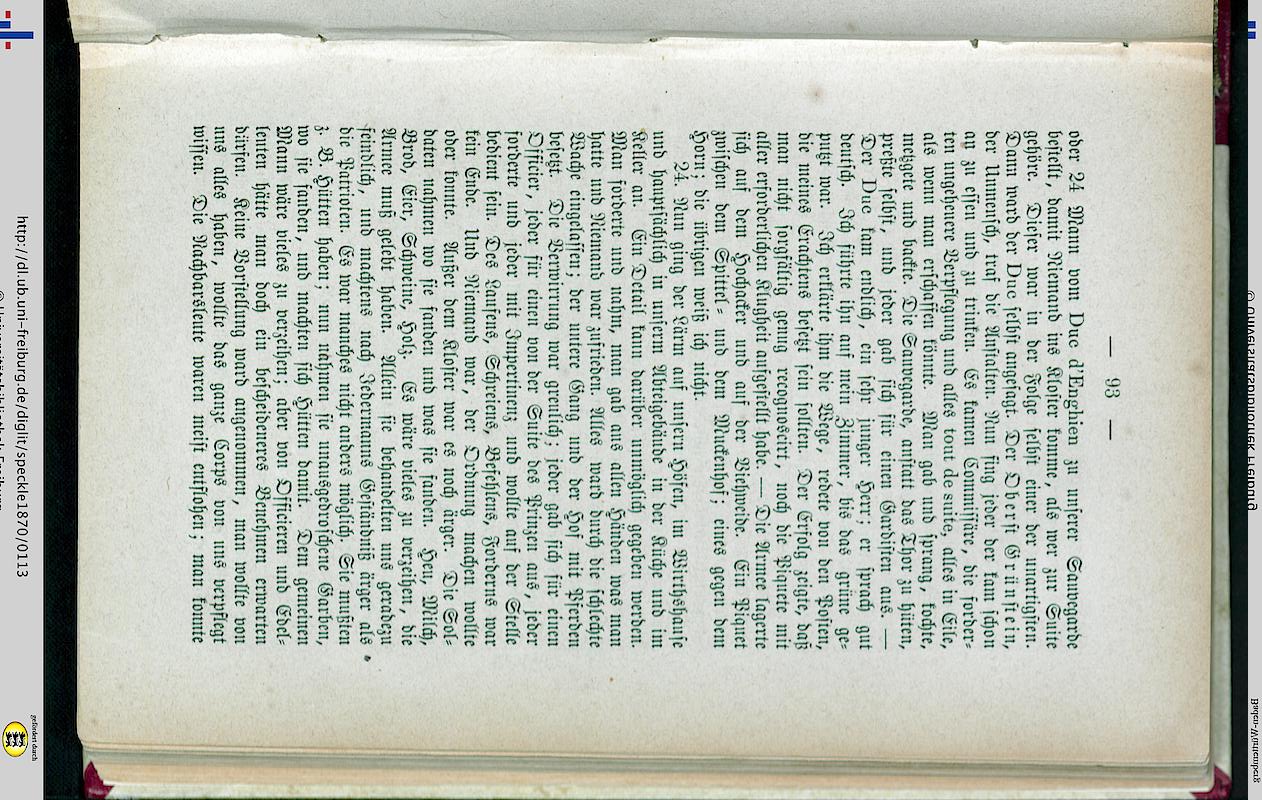 — 93 —
oder 24 Mann vom Duc d'Enghien zu unserer Sauvegarde
bestellt, damit Niemand ins Kloster komme, als wer zur Suite
gehöre. Dieser war in der Folge selbst einer der unartigsten.
Dann ward der Duc selbst angesagt. Der Oberst Grünstein,
der Unmensch, traf die Anstalten. Nun fing jeder der kam schon
an zu essen und zu trinken. Es kamen Commissäre, die forder-
ten ungeheure Verpflegung und alles tout de suite, alles in Eile,
als wenn man erschaffen könnte. Man gab und sprang, kochte,
metzgete und backte. Die Sauvegarde, anstatt das Thor zu hüten,
preßte selbst, und jeder gab sich für einen Gardisten aus. —
Der Duc kam endlich, ein sehr junger Herr; er sprach gut
deutsch. Ich führte ihn auf mein Zimmer, bis das grüne ge-
putzt war. Ich erklärte ihm die Wege, redete von den Posten,
die meines Erachtens besetzt sein sollten. Der Erfolg zeigte, daß
man nicht sorgfältig genug recognoscirt, noch die Piquete mit
aller erforderlichen Klugheit aufgestellt habe. — Die Armee lagerte
sich auf dem Hochacker und auf der Viehweide. Ein Piquet
zwischen dem Spittel- und dem Muckenhof; eines gegen dem
Horn; die übrigen weiß ich nicht.
24. Nun ging der Lärm auf unsern Höfen, im Wirthshause
und hauptsächlich in unserm Abteigebäude in der Küche und im
Keller an. Ein Detail kann darüber unmöglich gegeben werden.
Man forderte und nahm, man gab aus allen Händen was man
hatte und Niemand war zufrieden. Alles ward durch die schlechte
Wache eingelassen; der untere Gang und der Hof mit Pferden
besetzt. Die Verwirrung war greulich; jeder gab sich für einen
Officier, jeder für einen von der Suite des Prinzen aus, jeder
forderte und jeder mit Impertinenz und wollte auf der Stelle
bedient sein. Des Laufens, Schreiens, Befehlens, Forderns war
kein Ende. Und Niemand war, der Ordnung machen wollte
oder konnte. Außer dem Kloster war es noch ärger. Die Sol-
daten nahmen wo sie fanden und was sie fanden. Heu, Milch,
Brod, Eier, Schweine, Holz. Es wäre vieles zu verzeihen, die
Armee muß gelebt haben. Allein sie behandelten uns geradezu
feindlich, und machtens nach Jedermanns Geständniß ärger als
die Patrioten. Es war manches nicht anders möglich, Sie mußten
z. B. Hütten haben; nun nahmen sie unausgedroschene Garben,
wo sie fanden, und machten sich Hütten damit. Dem gemeinen
Mann wäre vieles zu verzeihen; aber von Officieren und Edel-
leuten hätte man doch ein bescheideneres Benehmen erwarten
dürfen. Keine Vorstellung ward angenommen, man wollte von
uns alles haben, wollte das ganze Corps von uns verpflegt
wissen. Die Nachbarsleute waren meist entflohen; man konnte
http://dl.ub.uni-freiburg.de/diglit/speckle1870/0113
gefördert durch